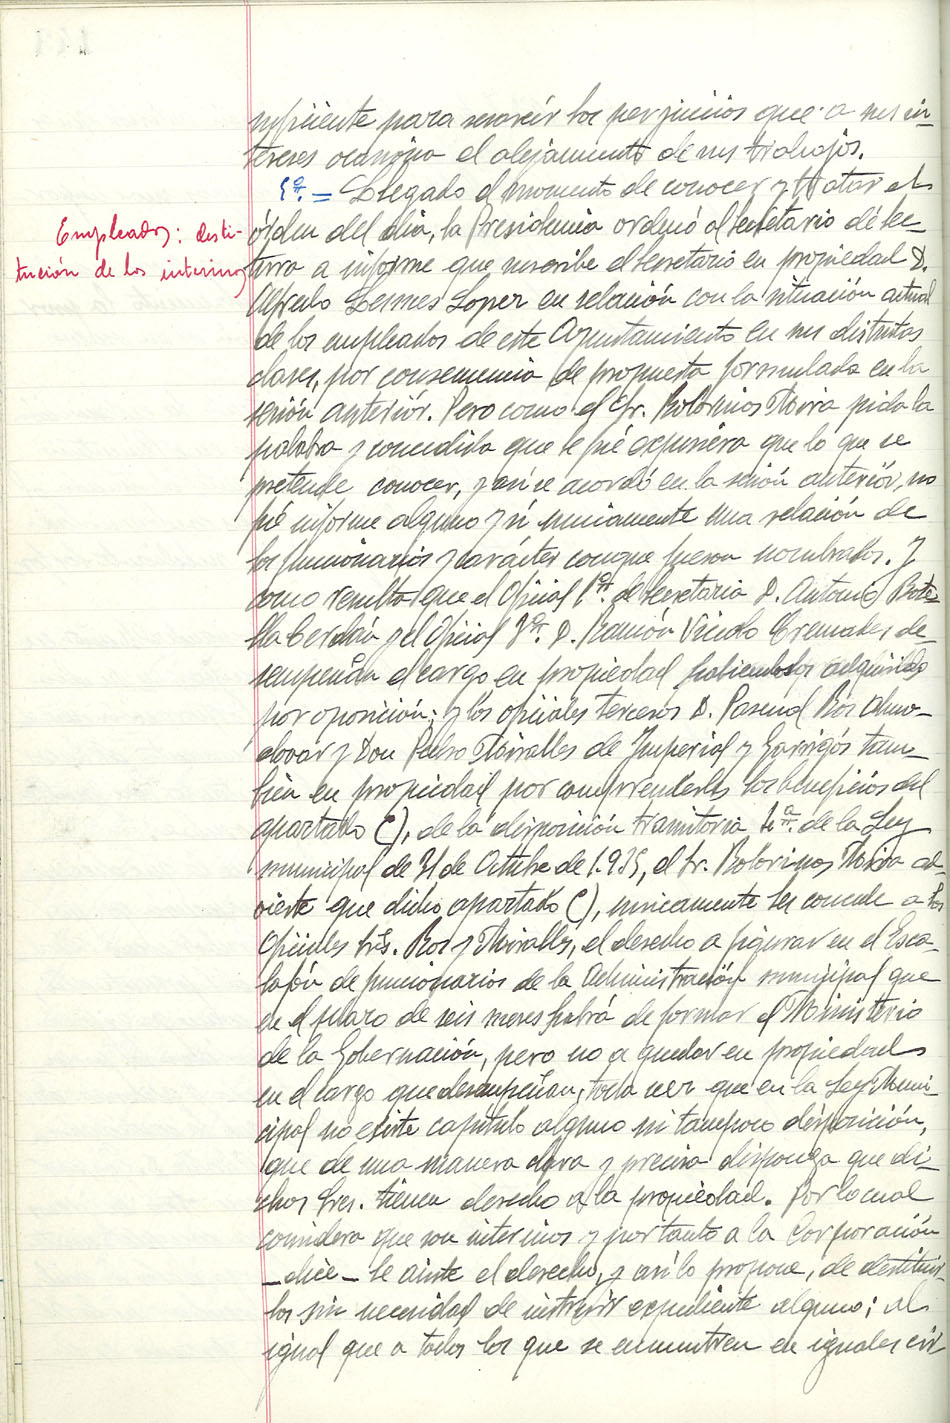 suficiente para resarcir los perjuicios que a sus in-
tereses ocasiona el alejamiento de sus trabajos.
5ª.= Llegado el momento de conocer y tratar el
Empleados: desti-
tución de los interinos
órden del dia, la Presidencia ordenó al secretario dé lec-
tura a informe que suscribe el secretario en propiedad D.
Alfredo Lopez en relación con la situación actual
de los empleados de este Ayuntamiento en sus distintas
clases, por consecuencia de propuesta formulada en la
sesión anteriór. Pero como el Sr. pida la
palabra y concedida que le fué expusiera que lo que se
pretende conocer, y así se acordó en la sesión anteriór, no
fué informe alguno y sí unicamente una relación de
los funcionarios y carácter conque fueron nombrados. Y
como resulta que el Oficial 1º. de secretaria D. Antonio Bote-
lla Cerdán y el Oficial D. Ramón Vicedo Cremades de-
sempeñan el cargo en propiedad habiendolos adquirido
por oposición; y los oficiales terceros D. Pascual Ros Almo-
dovar y Don Pedro Miralles de Imperial y Garrigós tam-
bien en propiedad por comprenderles los beneficios del
apartado C), de la disposición transitória 4ª. de la Ley
municipal de 31 de Octubre de 1.935, el Sr. ad-
vierte que dicho apartado C), unicamente les concede a los
Oficiales Srs. Ros y Miralles, el derecho a figurar en el Esca-
lafón de funcionarios de la Administración municipal que
en el plazo de seis meses habrá de formar el Ministerio
de la Gobernación, pero no a quedar en propiedad
en el cargo que desempeñan, toda vez que en la Ley Muni-
cipal no existe capitulo alguno ni tampoco disposición,
que de una manera clara y precisa disponga que di-
chos Sres. tienen derecho a la propiedad. Por lo cual
considera que son interinos y por tanto a la Corporación
-dice- le asiste el derecho, y así lo propone, de destituir-
los sin necesidad de instruir expediente alguno; al
igual que a todos los que se encuentren en iguales cir-